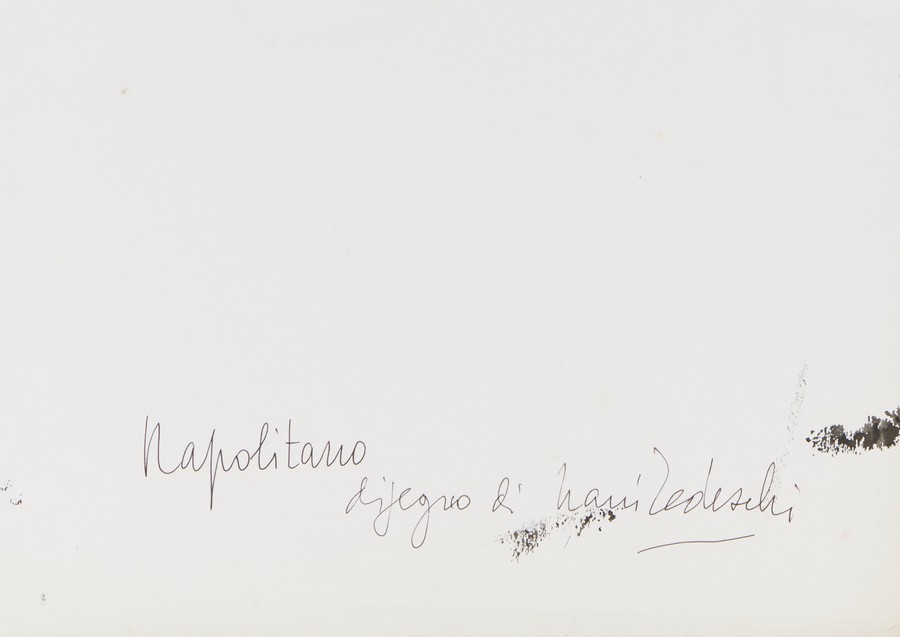 Napolitano
disegno di Nani Tedeschi